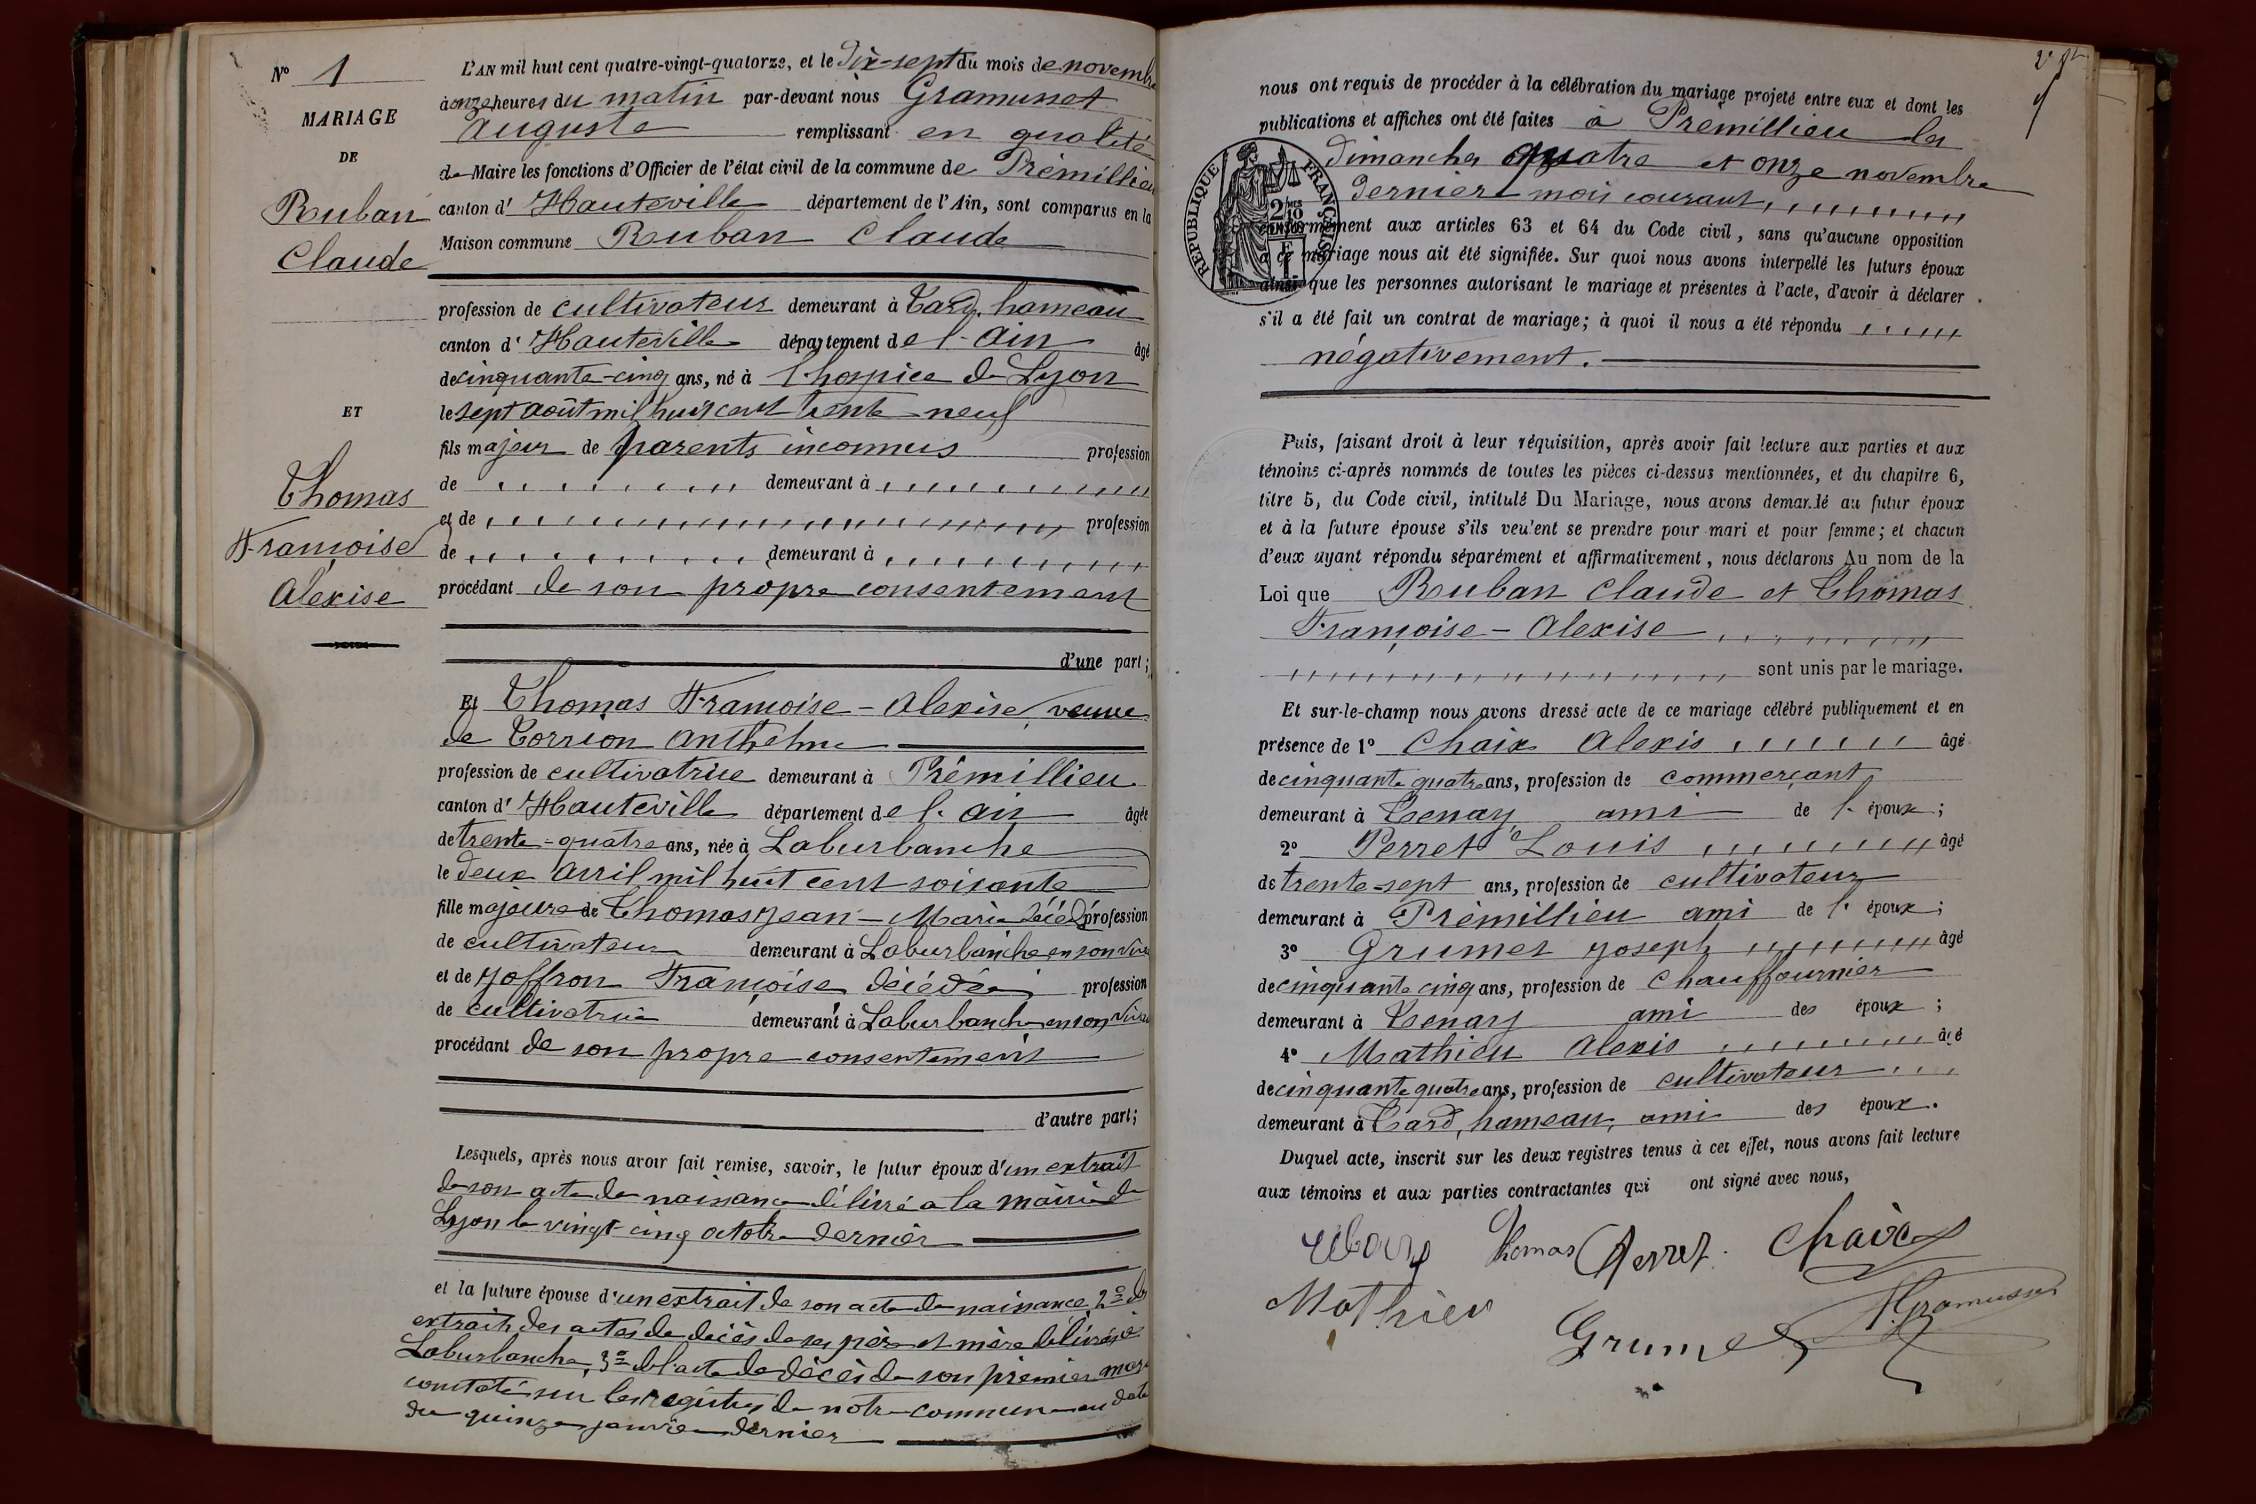 N° 1
MARIAGE
DE
Ruban
Claude
ET
Thomas
Françoise
Alexise
L'AN mil huit cent quatre-vingt-quatorze, et le Dix-sept du mois de novembre
à onze heures du matin par-devant nous Gramusset
Auguste remplissant en qualité
de Maire les fonctions d'Officier de l'état civil de la commune de Prémillieu
canton d' Hauteville département de l'Ain, sont comparus en la
Maison commune Ruban Claude
profession de cultivateur demeurant à Tard, hameau
canton d' Hauteville département de l'Ain âgé
de cinquante-cinq ans, né à l'hospice de Lyon
le sept août mil huit cent trente-neuf
fils majeur de parents inconnus profession
de demeurant à
et de profession
de demeurant à
procédant de son propre consentement
d'une part;
Et Thomas Françoise-Alexise, veuve
de Corrion Anthelme
profession de cultivatrice demeurant à Prémillieu
canton d' Hauteville département de l'Ain âgée
de trente-quatre ans, née à Laburbanche
le deux avril mil huit cent soixante
fille majeure de Thomas Jean-Marie décédé profession
de cultivateur demeurant à Laburbanche en son vivant
et de Joffron Françoise décédée profession
de cultivatrice demeurant à Laburbanche en son vivant
procédant de son propre consentement
d'autre part;
Lesquels, après nous avoir fait remise, savoir, le futur époux d'un extrait
de son acte de naissance délivré a la mairie de
Lyon le vingt-cinq octobre dernier
et la future épouse d'un extrait de son acte de naissance, 2° des
extraits des actes de décès de ses père et mère délivrés à
Laburbanche, 3° de l'acte de décès de son premier mari
constaté sur les registres de notre commune en date
du quinze janvier dernier
nous ont requis de procéder à la célébration du mariage projeté entre eux et dont les
publications et affiches ont été faites à Prémillieu les
dimanches quatre et onze novembre
dernier mois courant
RÉPUBLIQUE FRANÇAISE
conformément aux articles 63 et 64 du Code civil, sans qu'aucune opposition
à ce mariage nous ait été signifiée. Sur quoi nous avons interpellé les futurs époux
ainsi que les personnes autorisant le mariage et présentes à l'acte, d'avoir à déclarer
s'il a été fait un contrat de mariage; à quoi il nous a été répondu
négativement.
Puis, faisant droit à leur réquisition, après avoir fait lecture aux parties et aux
témoins ci-après nommés de toutes les pièces ci-dessus mentionnées, et du chapitre 6,
titre 5, du Code civil, intitulé Du Mariage, nous avons demandé au futur époux
et à la future épouse s'ils veulent se prendre pour mari et pour femme; et chacun
d'eux ayant répondu séparément et affirmativement, nous déclarons Au nom de la
Loi que Ruban Claude et Thomas
Françoise-Alexise
sont unis par le mariage.
Et sur-le-champ nous avons dressé acte de ce mariage célébré publiquement et en
présence de 1° Chaix Alexis âgé
de cinquante quatre ans, profession de commerçant,
demeurant à Tenay ami de l' époux;
2° Perret Louis âgé
de trente-sept ans, profession de cultivateur
demeurant à Prémillieu ami de l' époux;
3° Grumet Joseph âgé
de cinquante cinq ans, profession de chauffournier
demeurant à Tenay ami des époux;
4° Mathieu Alexis âgé
de cinquante quatre ans, profession de cultivateur
demeurant à Tard, hameau, ami des époux.
Duquel acte, inscrit sur les deux registres tenus à cet effet, nous avons fait lecture
aux témoins et aux parties contractantes qui ont signé avec nous,
Thomas Perret. Chaix
Mathieu
Grumet Gramusset